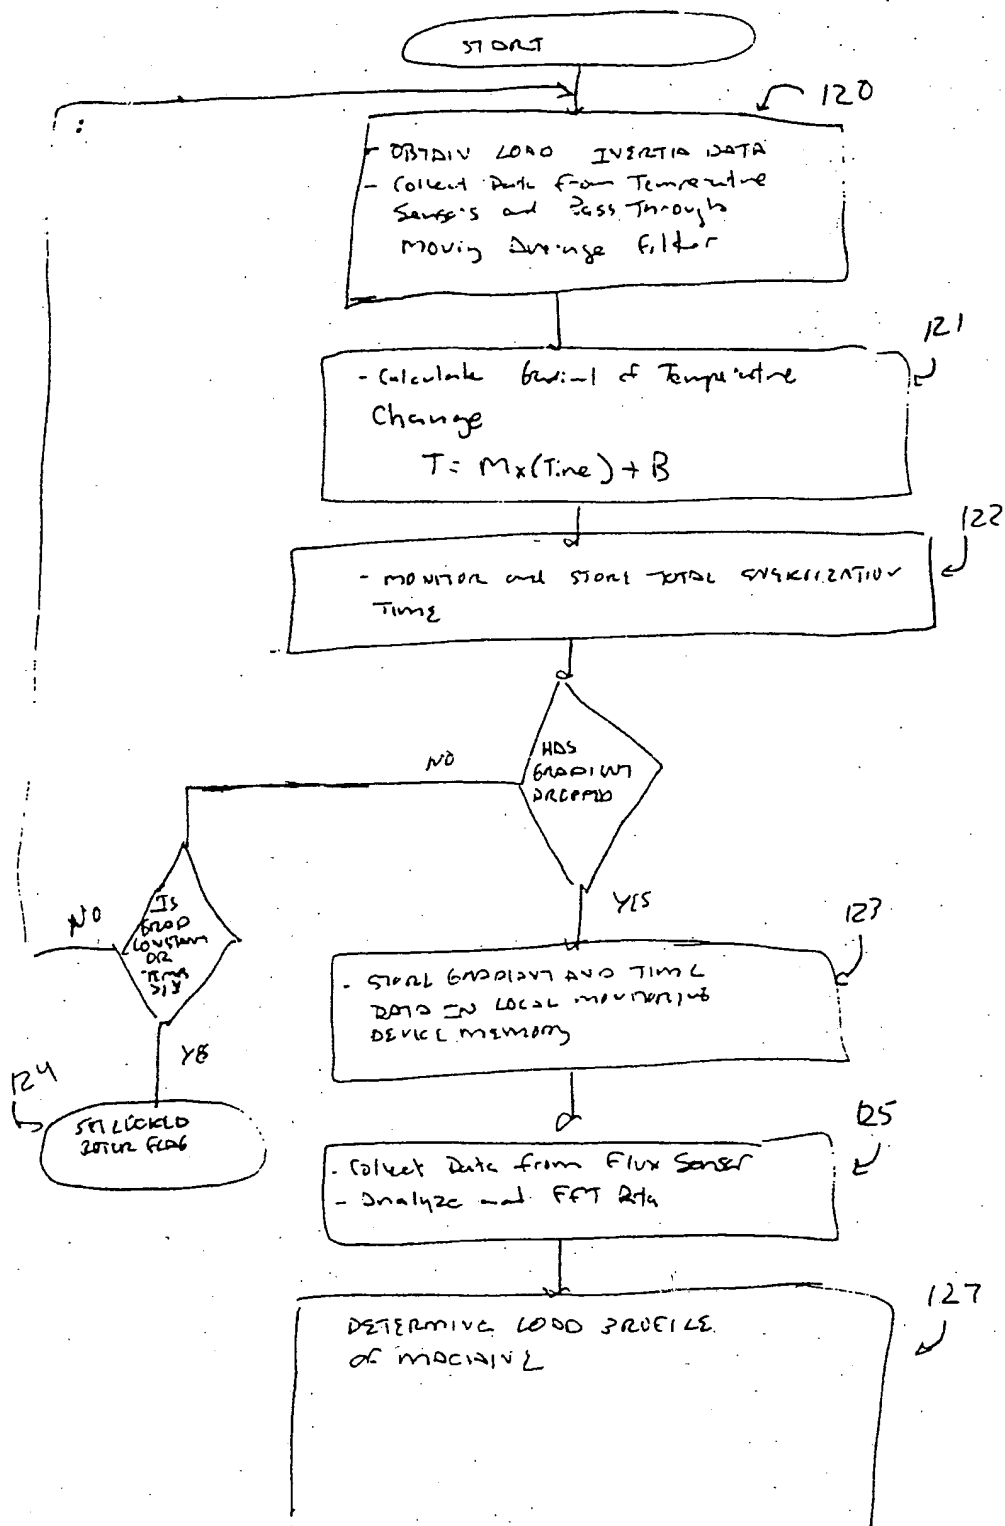 START
120
- OBTAIN LOAD INERTIA DATA
- Collect Data From Temperature
Sensors and Pass Through
Moving Average Filter
121
- Calculate Gradient of Temperature
Change
T = Mx(Time) + B
122
- MONITOR and STORE TOTAL ENERGIZATION
TIME
HAS
GRADIENT
DROPPED
NO
YES
IS
GRAD
CONSTANT
OR
NO
YES
123
- STORE GRADIENT AND TIME
DATA IN LOCAL MONITORING
DEVICE MEMORY
124
SET LOCKED
ROTOR FLAG
125
- Collect Data from Flux Sensor
- Analyze and FFT Data
127
DETERMINE LOAD PROFILE
OF MACHINE